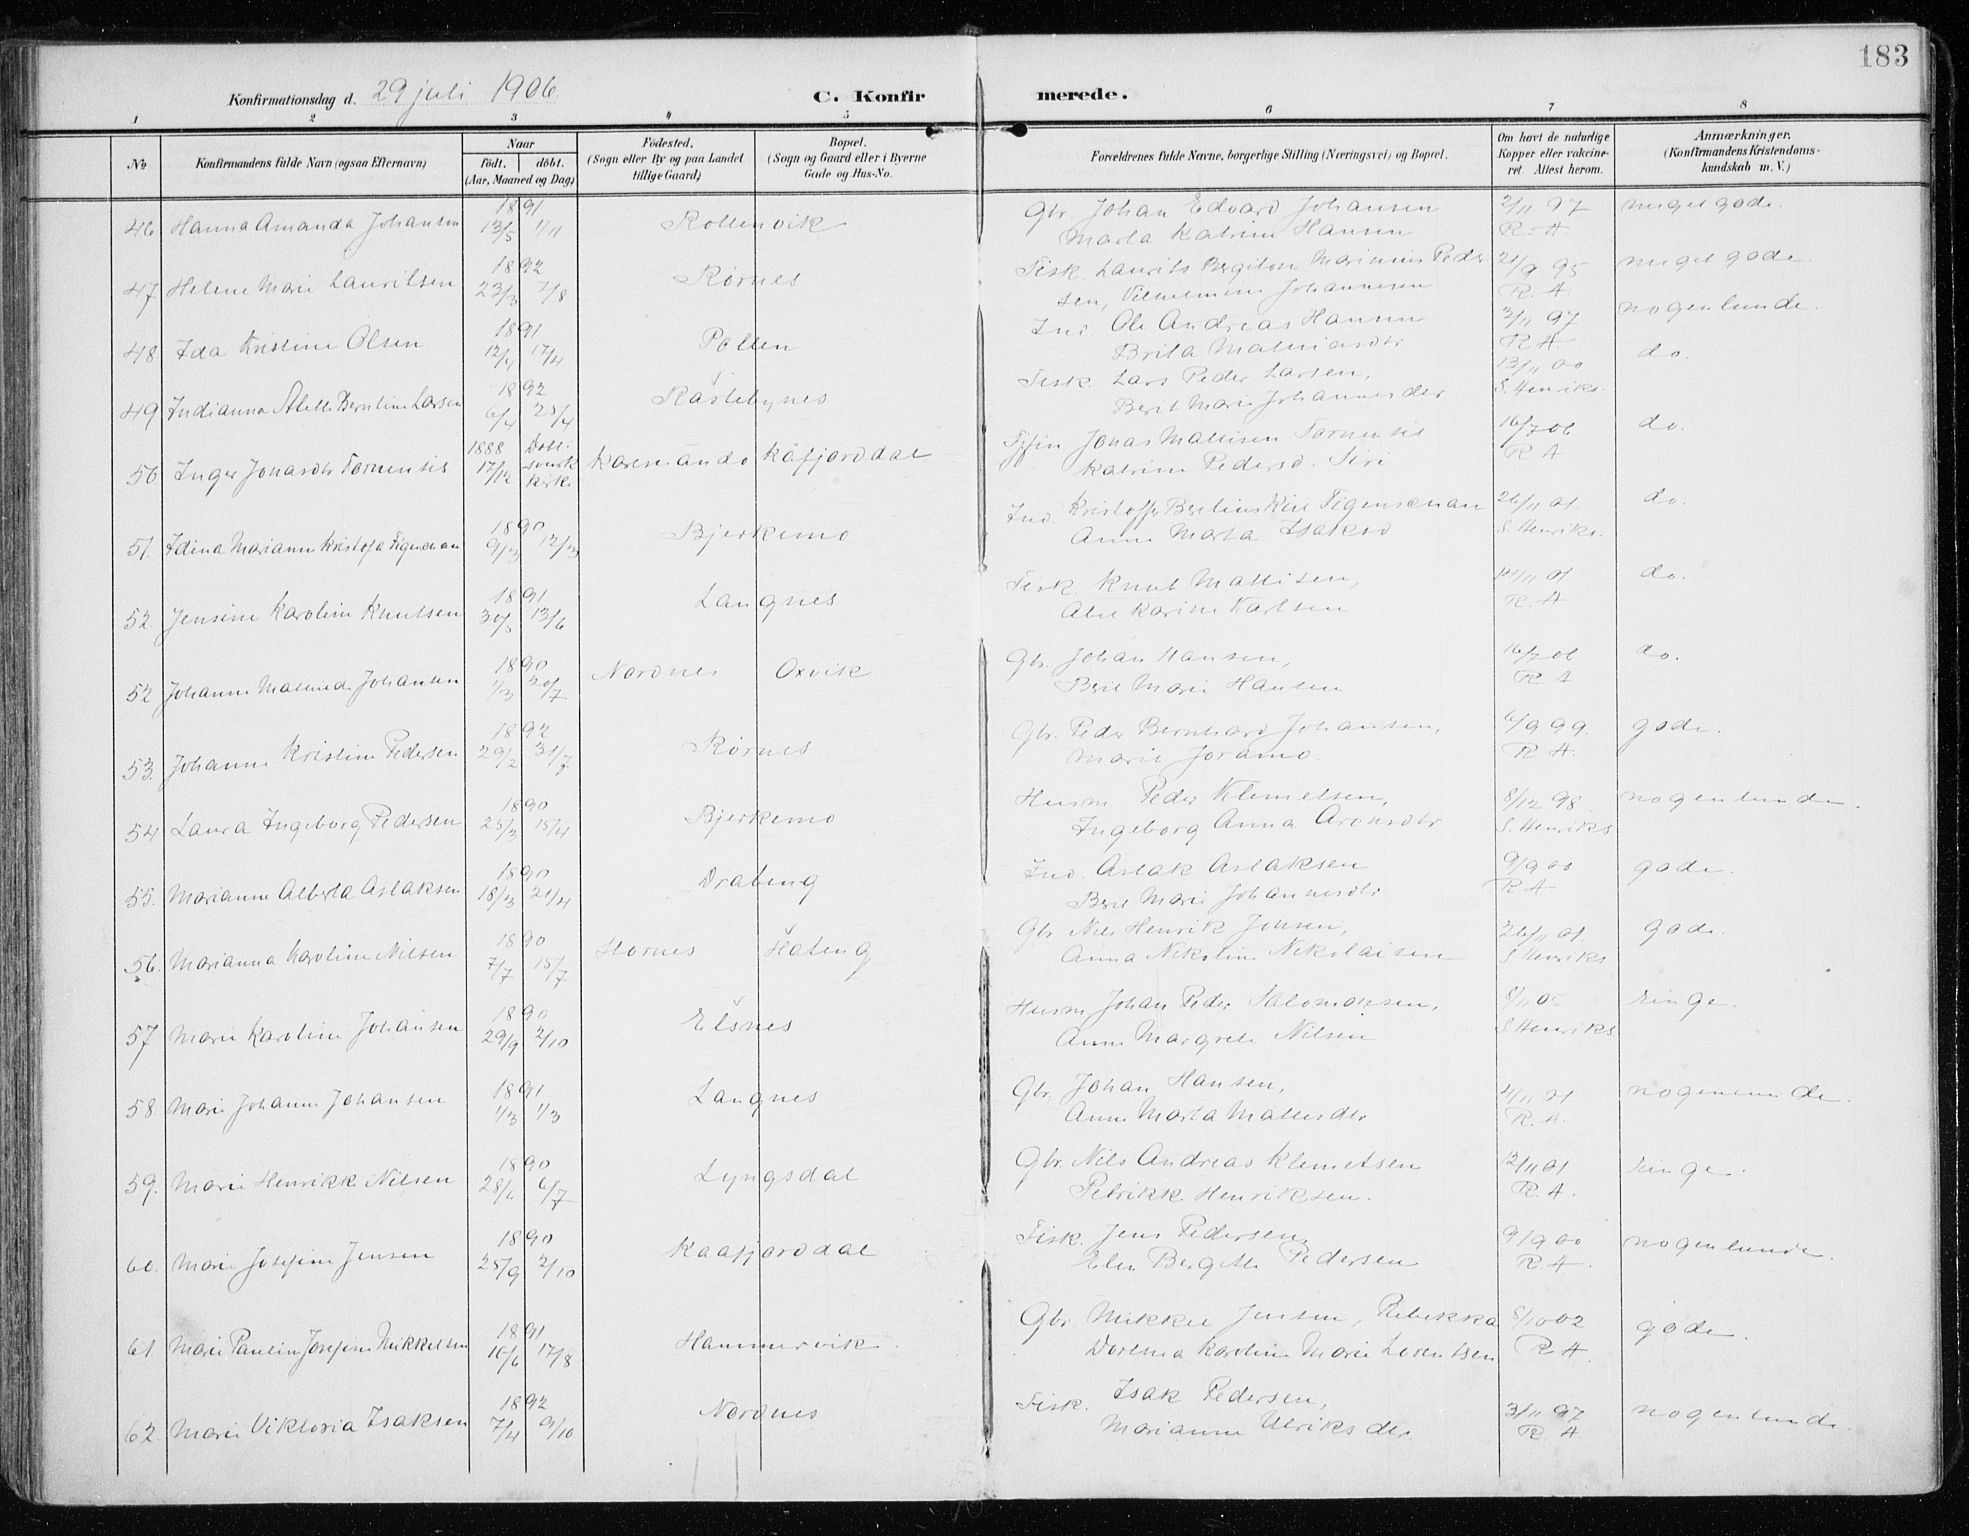 183
Konfirmationsdag d. 29 juli 1906.
C. Konfirmerede.
1 2 3 4 5 6 7 8
No
Konfirmandens fulde Navn (ogsaa Efternavn)
Naar
födt. döbt.
(Aar, Maaned og Dag)
Födested.
(Sogn eller By og paa Landet
tillige Gaard)
Bopæl.
(Sogn og Gaard eller i Byerne
Gade og Hus-No.
Forældrenes fulde Navne, borgerlige Stilling (Næringsvei) og Bopæl.
Om havt de naturlige
Kopper eller vakcine-
ret. Attest herom.
Anmærkninger.
(Konfirmandens Kristendoms-
kundskab m. V.)
46 Hanna Amanda Johansen 1891 13/5 1/11 Rottenvik Gbr. Johan Edvard Johansen 2/11 97 meget gode.
Marta Katrine Hansen R. A
47 Helene Marie Lauritsen 1892 23/3 7/8 Rörnes Fisk. Laurits Bergiton Marinius Peder 21/9 95 meget gode.
sen, Vilhelmine Johannesen R. A
48 Ida Kristine Olsen 1891 12/4 17/4 Pollen Ind. Ole Andreas Hansen 3/11 97 nogenlunde.
Brita Mathiasdtr R. A
49 Indianna Aletta Berntine Larsen 1892 6/4 25/4 Rastebynes Fisk. Lars Peder Larsen, 13/11 00 do.
Berit Marie Johannesdtr S. Henriks.
50 Inger Jonasdtr Tornensis 1888 17/12 Karesuando Kåfjorddal Jonas Mathisen Tornensis 16/7 06 do.
Katrine Pedersd. Siri R A
51. Edina Marianne Kristofa Figenscau 1890 9/3 12/3 Bjerkemo Ind. Kristoffer Figenscau 26/11 01 do.
Anne Marta Isaksd S. Henriks.
52 Jensine Karoline Knutsen 1891 30/5 13/6 Langnes Fisk. Knut Mathisen, 14/11 01 do.
Karine Karlsen R. A
52 Johanne Johansen 1890 1/3 20/7 Nordnes Oxvik Gbr. Johan Hansen, 16/7 06 do.
Berit Marie Hansen R A
53. Johanne Kristine Pedersen 1892 29/2 31/7 Rörnes Gbr. Peder Bernhard Johansen, 6/9 99. gode.
Marie Joramo. R. A.
54 Laura Ingeborg Pedersen 1890 25/3 15/4 Bjerkemo Husm Peder Klemetsen, 8/12 98 nogenlunde.
Ingeborg Anna Aronsdtr S. Henriks
55. Marianne Alberta Aslaksen 1890 18/3 21/4 Drabeng Ind. Aslak Aslaksen 9/9 00 gode.
Berit Marie Johannesdtr R. A
56. Marianna Karoline Nilsen 1890 7/7 15/7 Stornes Håteng Gbr. Nils Henrik Jonsen, 26/11 01. gode.
Anna Nikoline Nikolaisen S Henriks
57 Marie Karoline Johansen 1890 29/9 2/10 Elsnes Husm Johan Peder Salomonsen, 8/11 0 ringe.
Anne Margrete Nilsen S Henriks
58. Marie Johanne Johansen 1891 1/3 1/3 Langnes Gbr. Johan Hansen, nogenlunde.
Anne Marta Mathisdtr R. A.
59. Marie Henrikke Nilsen 1890 28/6 6/7 Lyngsdal Gbr. Nils Andreas Klemetsen 12/11 01 ringe.
Petrikke Henriksen. R. A.
60. Marie Josefine Jensen 1890 25/9 2/10 Kaafjorddal Fisk. Jens Pedersen, 9/9 00 nogenlunde.
Elen Bergitte Pedersen R. A.
61 Marie Pauline Josefine Mikkelsen 1891 10/6 17/8 Hammervik. Gbr. Mikkel Jensen, Rebekka 8/10 02 gode.
Dortma Karoline Marie Lorentsen R A.
62. Marie Viktoria Isaksen 1892 7/4 9/10 Nordnes Fisk. Isak Pedersen, 3/11 97 nogenlunde.
Marianne Ulriksdtr R. A